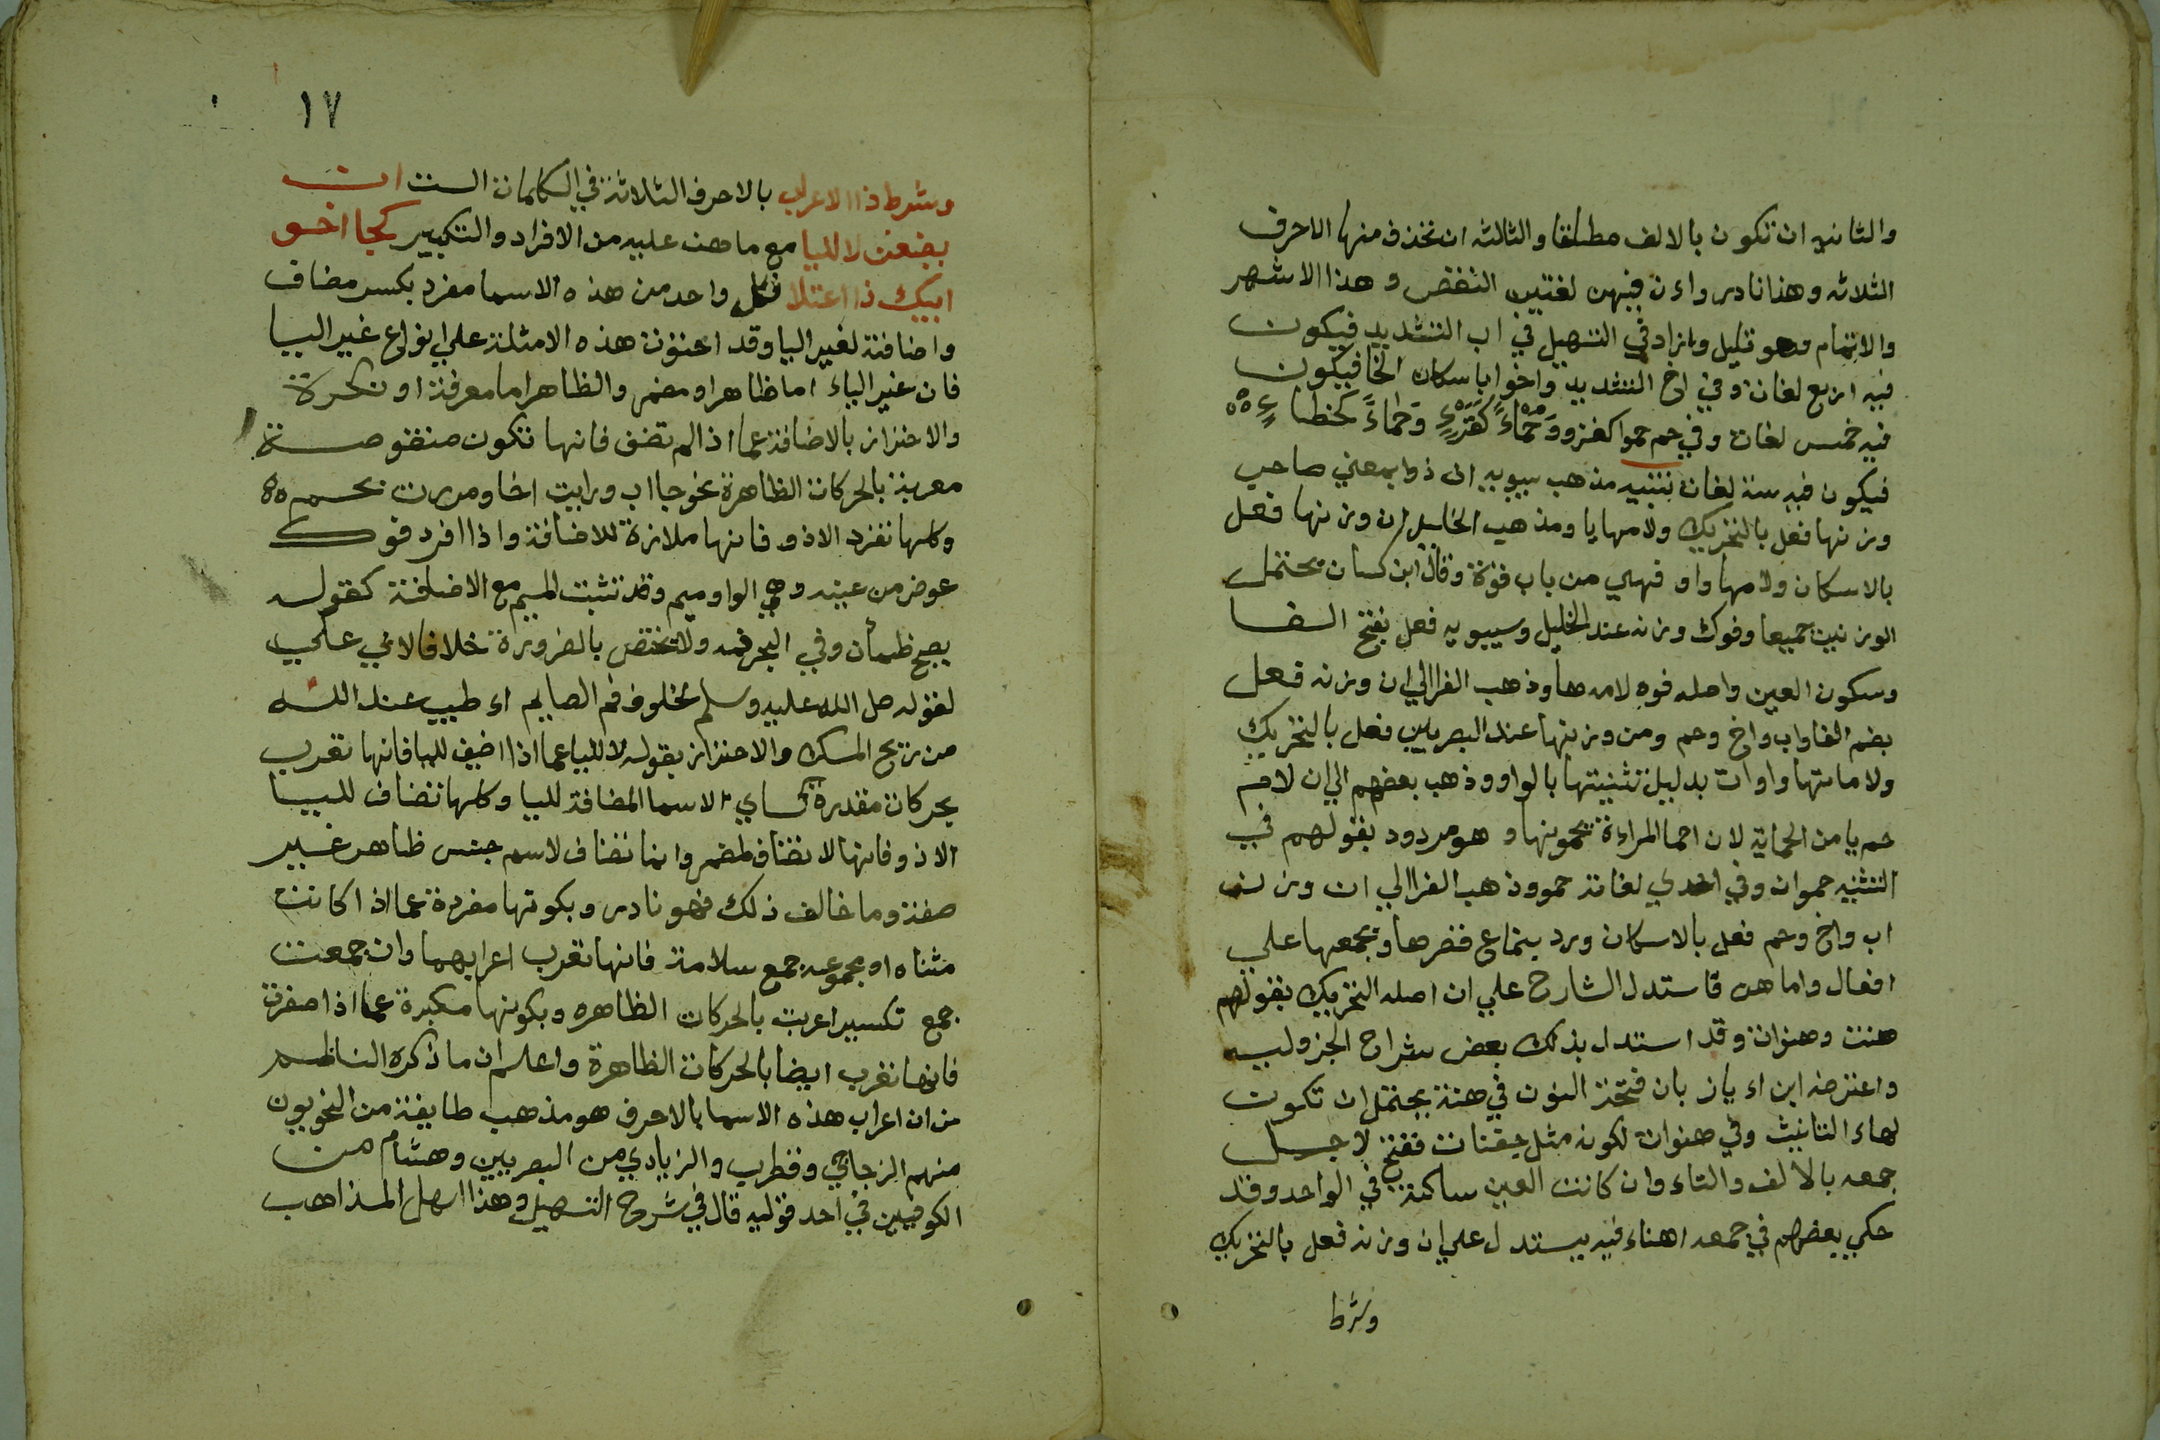 والثانيه ان تكون بالالف مطلقا والثالثه ان تحذف منها الاحرف
الثلاثه وهذا نادر واءن فيهن لغتين النقص وهذا الاشهر
والاتمام وهو قليل وزاد في التسهيل في اب التشديد فيكون
فيه اربع لغات وفي اخ التشديد واخوا باسكان الخا فيكون
فيه خمس لغات وفي حم حموا كغزو وحماء كقرء وحماء كخطاء
فيكون فيه ستة لغات تنبيه مذهب سيبويه ان ذوا بمعني صاحب
وزنها فعل بالتحريك ولامها يا ومذهب الخليل ان وزنها فعل
بالاسكان ولامها واو فهي من باب قوة وقال ابن كسان محتمل
الوزنين جميعا وفوك وزنه عند الخليل وسيبويه فعل بفتح الفا
وسكون العين واصله فوه لامه ها وذهب الفرا الي ان وزنه فعل
بضم الفا واب واخ وحم ومن وزنها عند البصريين فعل بالتحريك
ولاماتها واوات بدليل تثنيتها بالواو وذهب بعضهم الي ان لام
حم يا من الحماية لان احما المراءة يحمونها وهو مردود بقولهم في
التثنيه حموان وفي احدي لغاته حمو وذهب الفرا الي ان وزن
اب واخ وحم فعل بالاسكان ورد بسماع قصرها وبجمعها علي
افعال واما هن فاستدل الشارح علي ان اصله التحريك بقولهم
هنت وهنوان وقد استدل بذلك بعض شراح الجزوليه
واعترضه ابن اءياز بان فتحة النون في هنة يحتمل ان تكون
لهاء التانيث وفي هنوات لكونه مثل جفنات ففتح لاجل
جمعه بالالف والتاء وان كانت العين ساكنة في الواحد وقد
حكي بعضهم في جمعه اهناء فيه يستدل علي ان وزنه فعل بالتحريك
وشرط
١٧
وشرط ذا الاعراب بالاحرف الثلاثة في الكلمات الست ان
يضفن لا لليا مع ما هن عليه من الافراد والتكبير كجا اخو
ابيك ذا اعتلا فكل واحد من هذه الاسما مفرد بكسر مضاف
واضافته لغير اليا وقد احتوت هذه الامثلة علي انواع غير اليا
فان غير الياء اما ظاهر او مضمر والظاهر اما معرفة او نكرة
والاحتراز بالاضافة عما اذا لم تضف فانها تكون منقوصة
معربة بالحركات الظاهرة نحو جا اب ورايت اخا ومررت بحم
وكلها تفرد الا ذو فانها ملازمة للاضافة واذا افرد فوك
عوض من عينه وهي الواو ميم وقد تثبت الميم مع الاضافة كقوله
يصبح ظمأن وفي البحر فمه ولا يختص بالضرورة خلافا لابي علي
لقوله صل الله عليه وسلم لخلوف فم الصايم اءطيب عند الله
من ريح المسك والاحتراز بقوله لا لليا عما اذا اضيف لليا فانها تعرب
بحركات مقدرة كساي الاسما المضافة لليا وكلها تضاف لليا
الا ذو فانها لا تضاف لمضمر وانما تضاف لاسم جنس ظاهر غير
صفة وما خالف ذلك فهو نادر وبكونها مفردة عما اذا كانت
مثناه او مجموعه جمع سلامة فانها تعرب اعرابهما وان جمعت
جمع تكسير اعربت بالحركات الظاهره وبكونها مكبرة عما اذا صغرت
فانها تعرب ايضا بالحركات الظاهرة واعلم ان ما ذكره الناظم
من ان اعراب هذه الاسما بالاحرف هو مذهب طايفة من النحويون
منهم الزجاجي وقطرب والزيادي من البصريين وهشام من
الكوفيين في احد قوليه قال في شرح التسهيل وهذا اسهل المذاهب